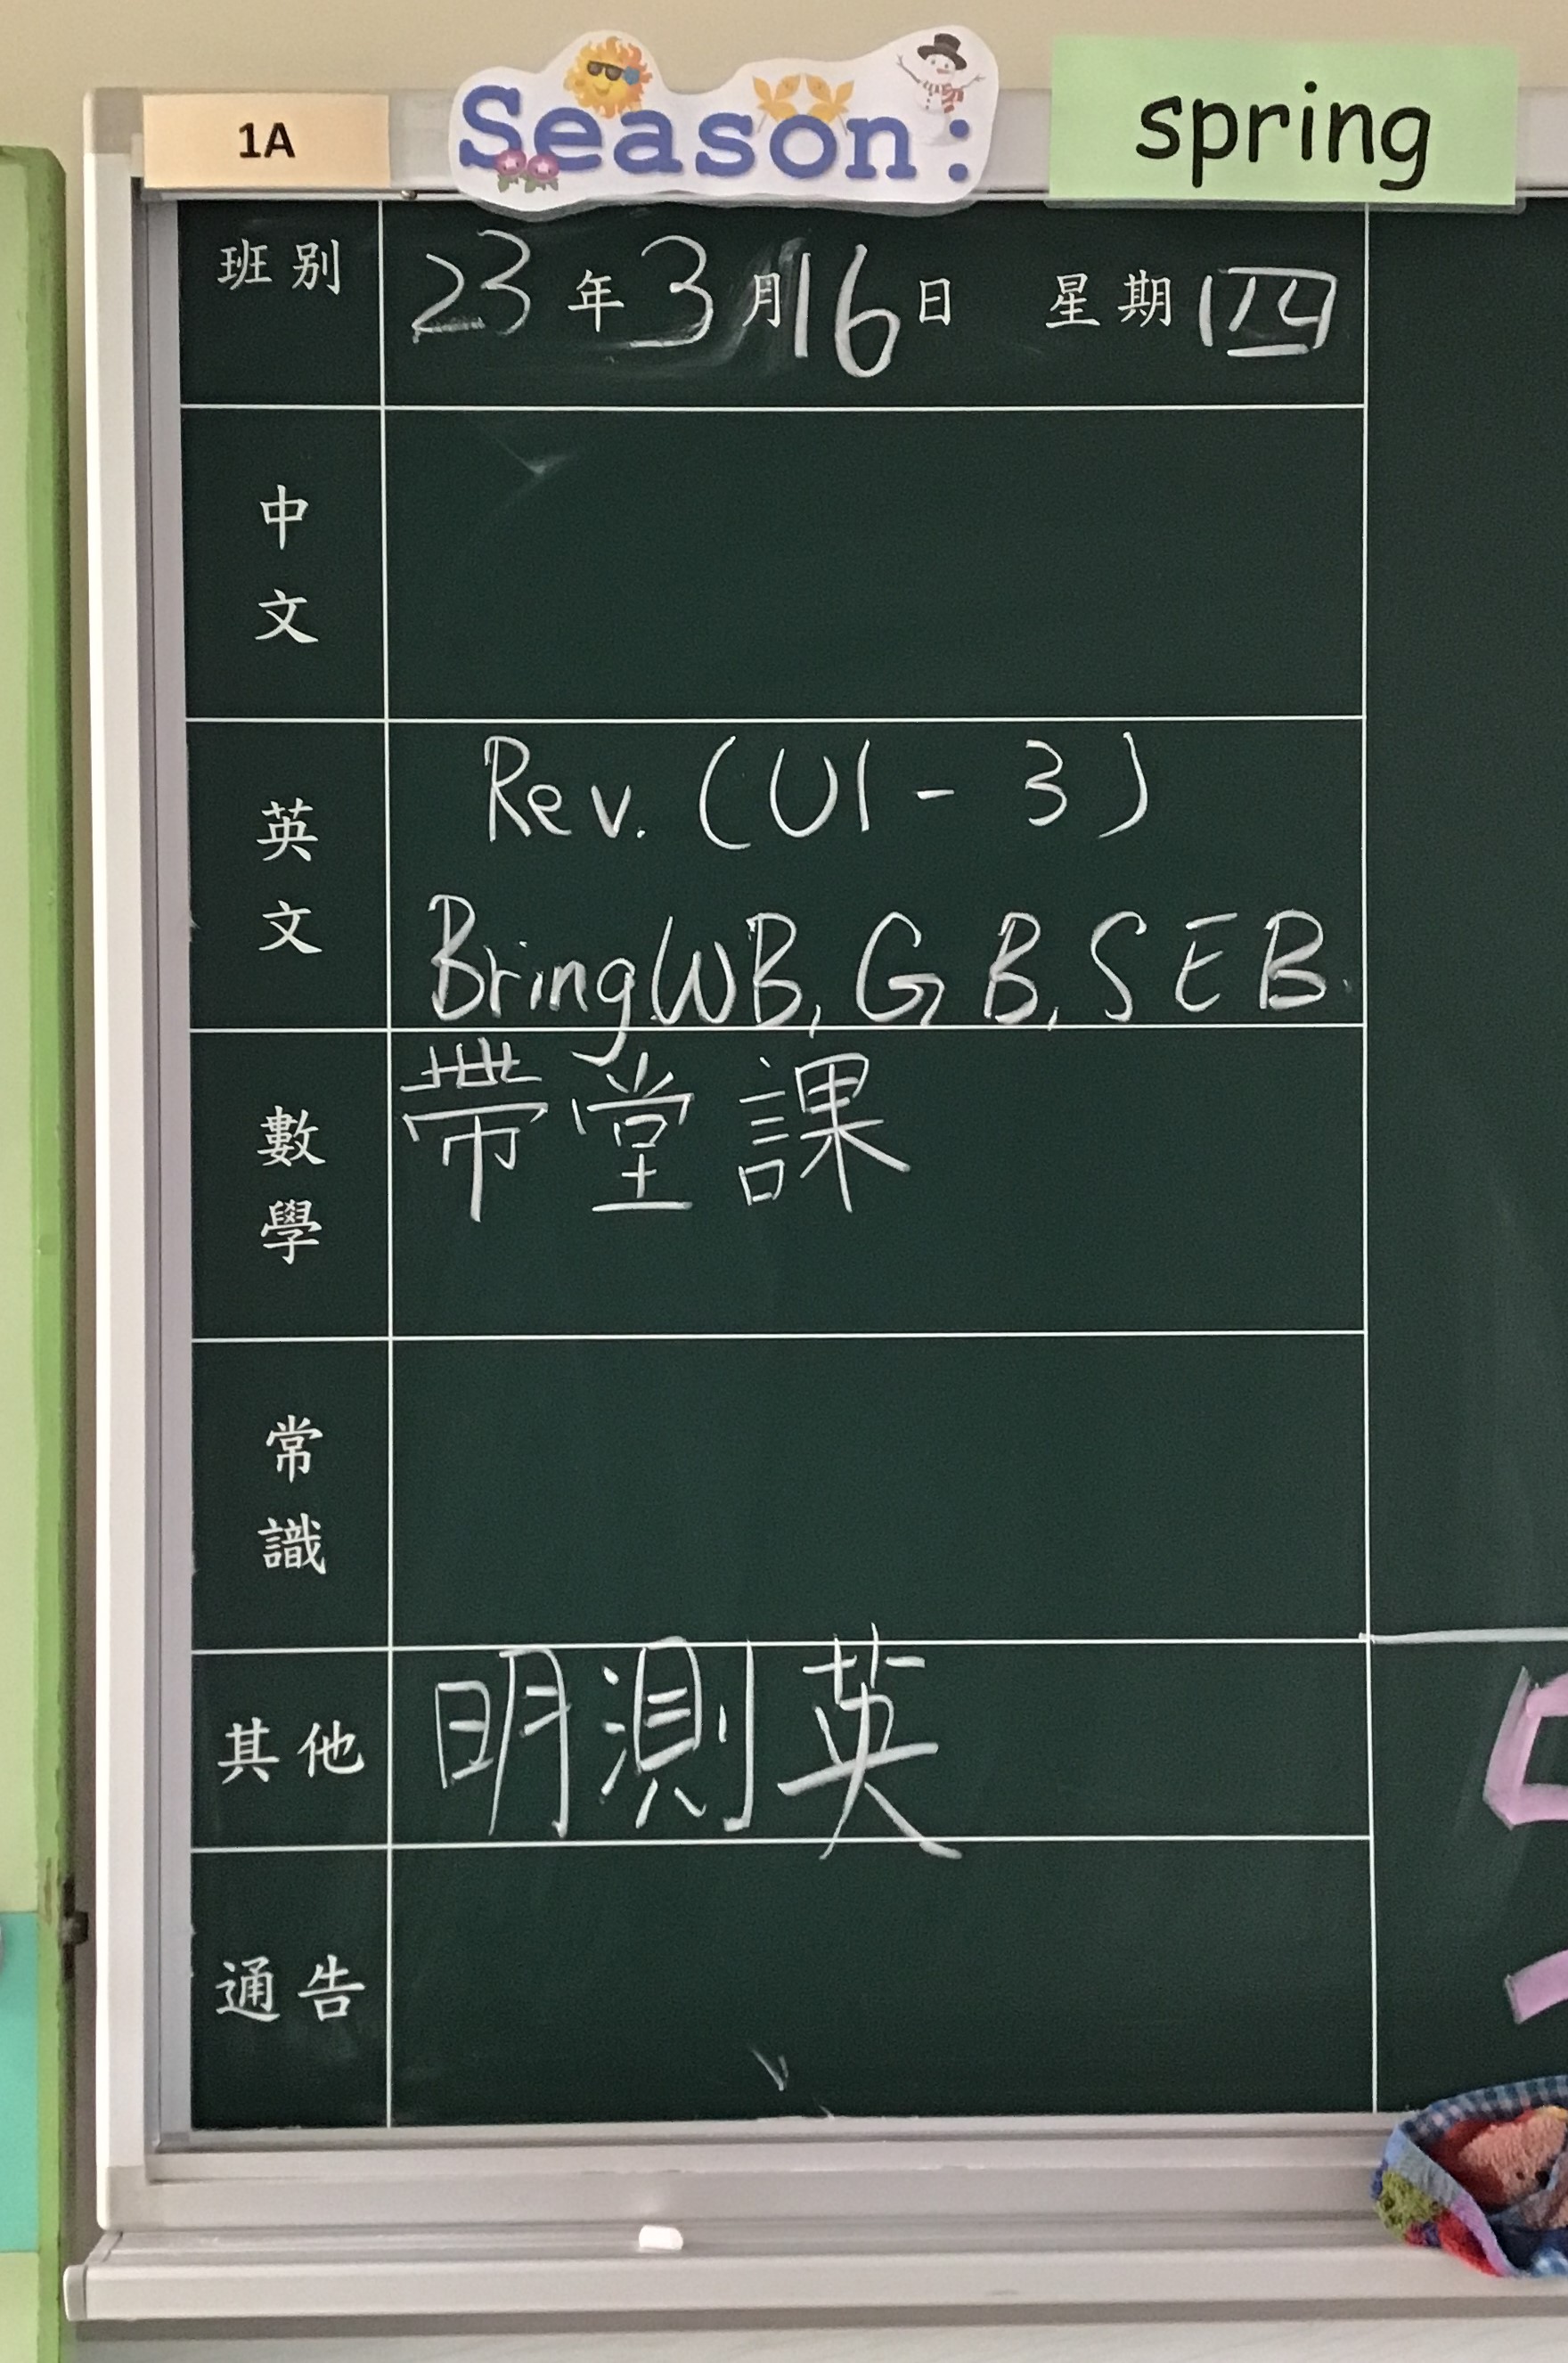 1A
Season:
spring
班別
23年3月16日 星期四
中文
英文
Rev. (U1-3)
Bring WB, GB, SEB.
數學
帶堂課
常識
其他
明測英
通告